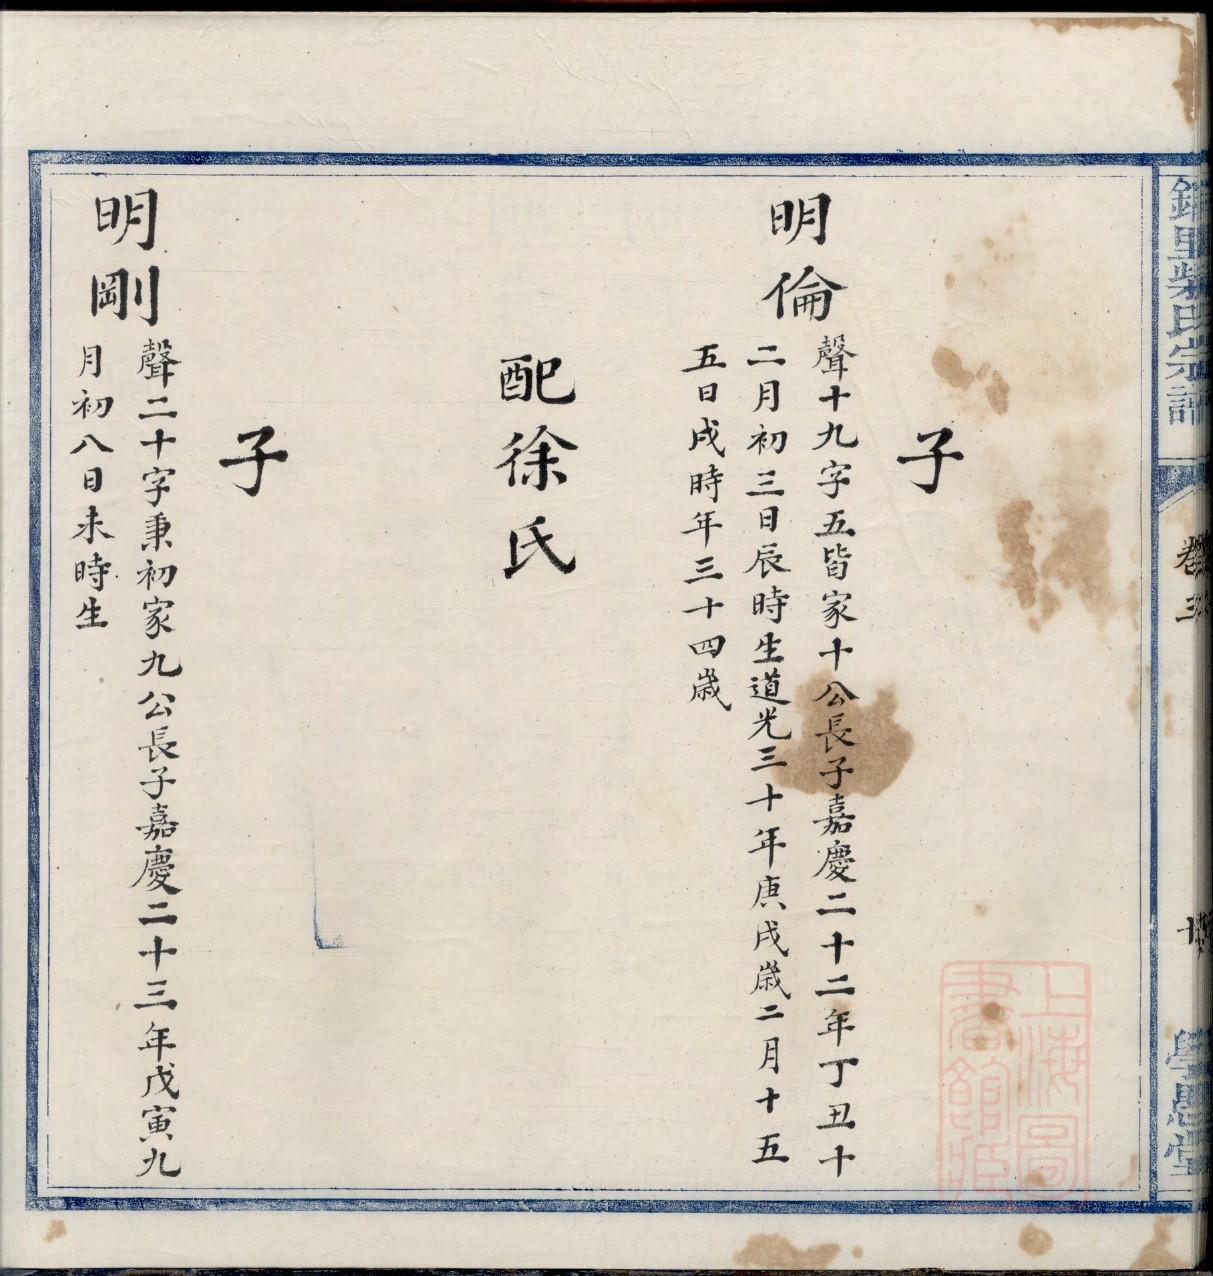 子
明倫
聲十九字五皆家十公長子嘉慶二十二年丁丑十
二月初三日辰時生道光三十年庚戌歲二月十五
五日戌時年三十四歲
配徐氏
子
明剛
聲二十字秉初家九公長子嘉慶二十三年戊寅九
月初八日未時生
里柴氏宗譜
卷三
學思堂
上海圖
書館藏